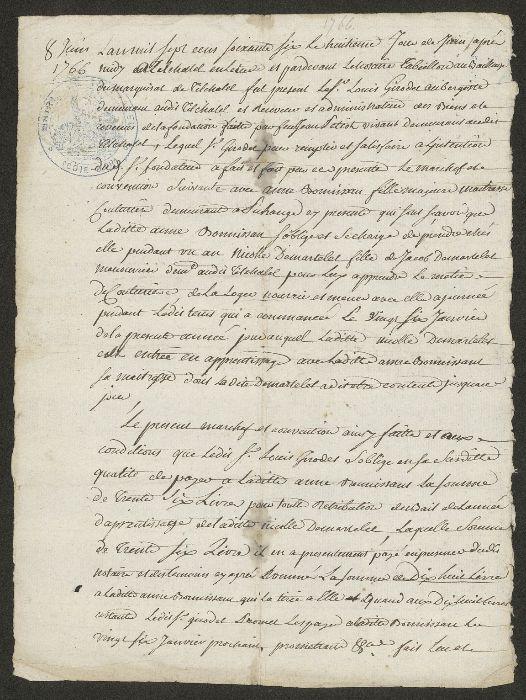 1766
8 Juin
1766
L'an mil sept cens soixante six le huitieme Jour de Juin après
midy et pardevant Le Notaire Tabellion au Bailliage
du marquisat de fut present Le Sr. Louis Girodet aubergiste
demeurant audit et Receveur et administrateur des Biens et
revenus de la fondation faitte par vivant demeurant audit
Lequel Sr. Girodet pour remplir et satisfaire a L'intention
du Sr. fondateur a fait et fait par ce presente Le marchef et
convention Suivante avec anne Bonnissan fille majeure maitresse
Couturiere demeurant a presente qui sont scavoir que
Laditte anne Bonnissan s'oblige et se charge de prendre chés
elle pendant un an Nicole Demartelet fille de Jacob Demartelet
manouvrier demt. audit pour Luy apprendre Le metier
de Couturiere de La Loger nourrir et mener avec elle a journée
pendant Ledit tems qui a commencé Le Vingt Six Janvier
de la presente année jour auquel Laditte nicolle Demartelet
est entrée en apprentissage avec Laditte anne Bonnissant
sa maitresse dont Ladite Demartelet a dit etre contente jusqu'a ce
jour
Le present marchef et convention ainsy faitte et aux
conditions que Ledit Sr. Louis Girodet s'oblige en sa Susditte
qualité de payer a Laditte anne Bonnissant La Somme
de Trente Six Livres pour toute Retribution de L'année
d'aprentissage de Laditte nicolle Demartelet Laquelle Somme
de Trente Six Livre il en a presentement payé en presence dudit
notaire et des temoins cy après Nommé La somme de Dix huit Livre
a Laditte anne Bonnissan qui L'a tirée a Elle et quand aux Dix huit Livres
restante Ledit Sr. girodet promet Les payer a Laditte Bonnissan Le
vingt six Janvier prochain promettant &ca fait Lu et